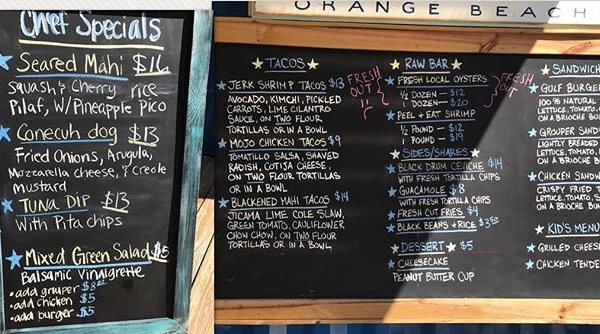 Chef Specials
Seared Mahi $16
Squash & Cherry rice
Pilaf, W/Pineapple Pico
Conecuh dog $13
Fried Onions, Arugula,
Mozzarella cheese, & creole
mustard
Tuna Dip $13
With Pita chips
Mixed Green Salad
Balsamic Vinaigrette
• add grouper
• add chicken $5
• add burger $5
ORANGE BEACH
TACOS
JERK SHRIMP TACOS $13
AVOCADO, KIMCHI, PICKLED
CARROTS, LIME CILANTRO
SAUCE, ON TWO FLOUR
TORTILLAS OR IN A BOWL
FRESH
OUT
MOJO CHICKEN TACOS $9
TOMATILLO SALSA, SHAVED
RADISH, COTIJA CHEESE,
ON TWO FLOUR TORTILLAS
OR IN A BOWL
BLACKENED MAHI TACOS $14
JICAMA LIME COLE SLAW,
GREEN TOMATO, CAULIFLOWER
CHOW CHOW, ON TWO FLOUR
TORTILLAS OR IN A BOWL
RAW BAR
FRESH LOCAL OYSTERS
½ DOZEN - $12
1 DOZEN - $20
FRESH
OUT
PEEL + EAT SHRIMP
½ POUND - $12
1 POUND - $19
SIDES/SHARES
BLACK DRUM CEVICHE $14
WITH FRESH TORTILLA CHIPS
GUACAMOLE $8
WITH FRESH TORTILLA CHIPS
FRESH CUT FRIES $4
BLACK BEANS + RICE $3.50
DESSERT $5
CHEESECAKE
PEANUT BUTTER CUP
SANDWICH
GULF BURGER
100% NATURAL
LETTUCE, TOMATO,
ON A BRIOCHE BU
GROUPER SAND
LIGHTLY BREADED
LETTUCE, TOMATO,
ON A BRIOCHE B
CHICKEN SAND
CRISPY FRIED
LETTUCE, TOMATO, S
ON A BRIOCHE BUN
KID'S MENU
GRILLED CHEES
CHICKEN TENDE